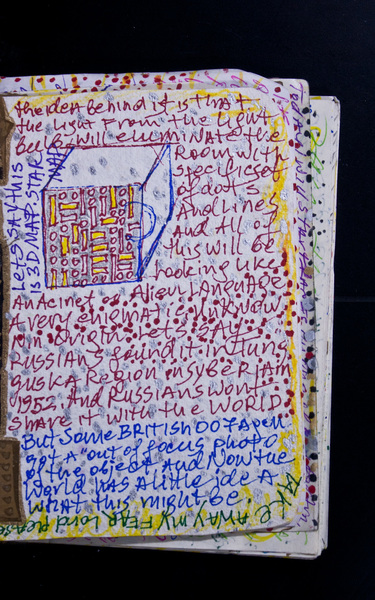 the idea behind it is that
the light from the light
bulb will eluminate the
Room with
specific set
of dots
And lines
And All of
this will be
looking like
Let's say this
is 3D MAP STAR
MAP
An Acinet or Alien LANGUAGE
A very enigmatic unknow
n in origin. Let's say
Russians found it in tung
guska Region in syberiam
1952 And Russians wont
share it with the WORLD
But some BRITISH 007 Agen
got A "out of focus photo
of the object And Now the
World has A little ide A
what this might be.
TAKE AWAY my FEAR Lord Please